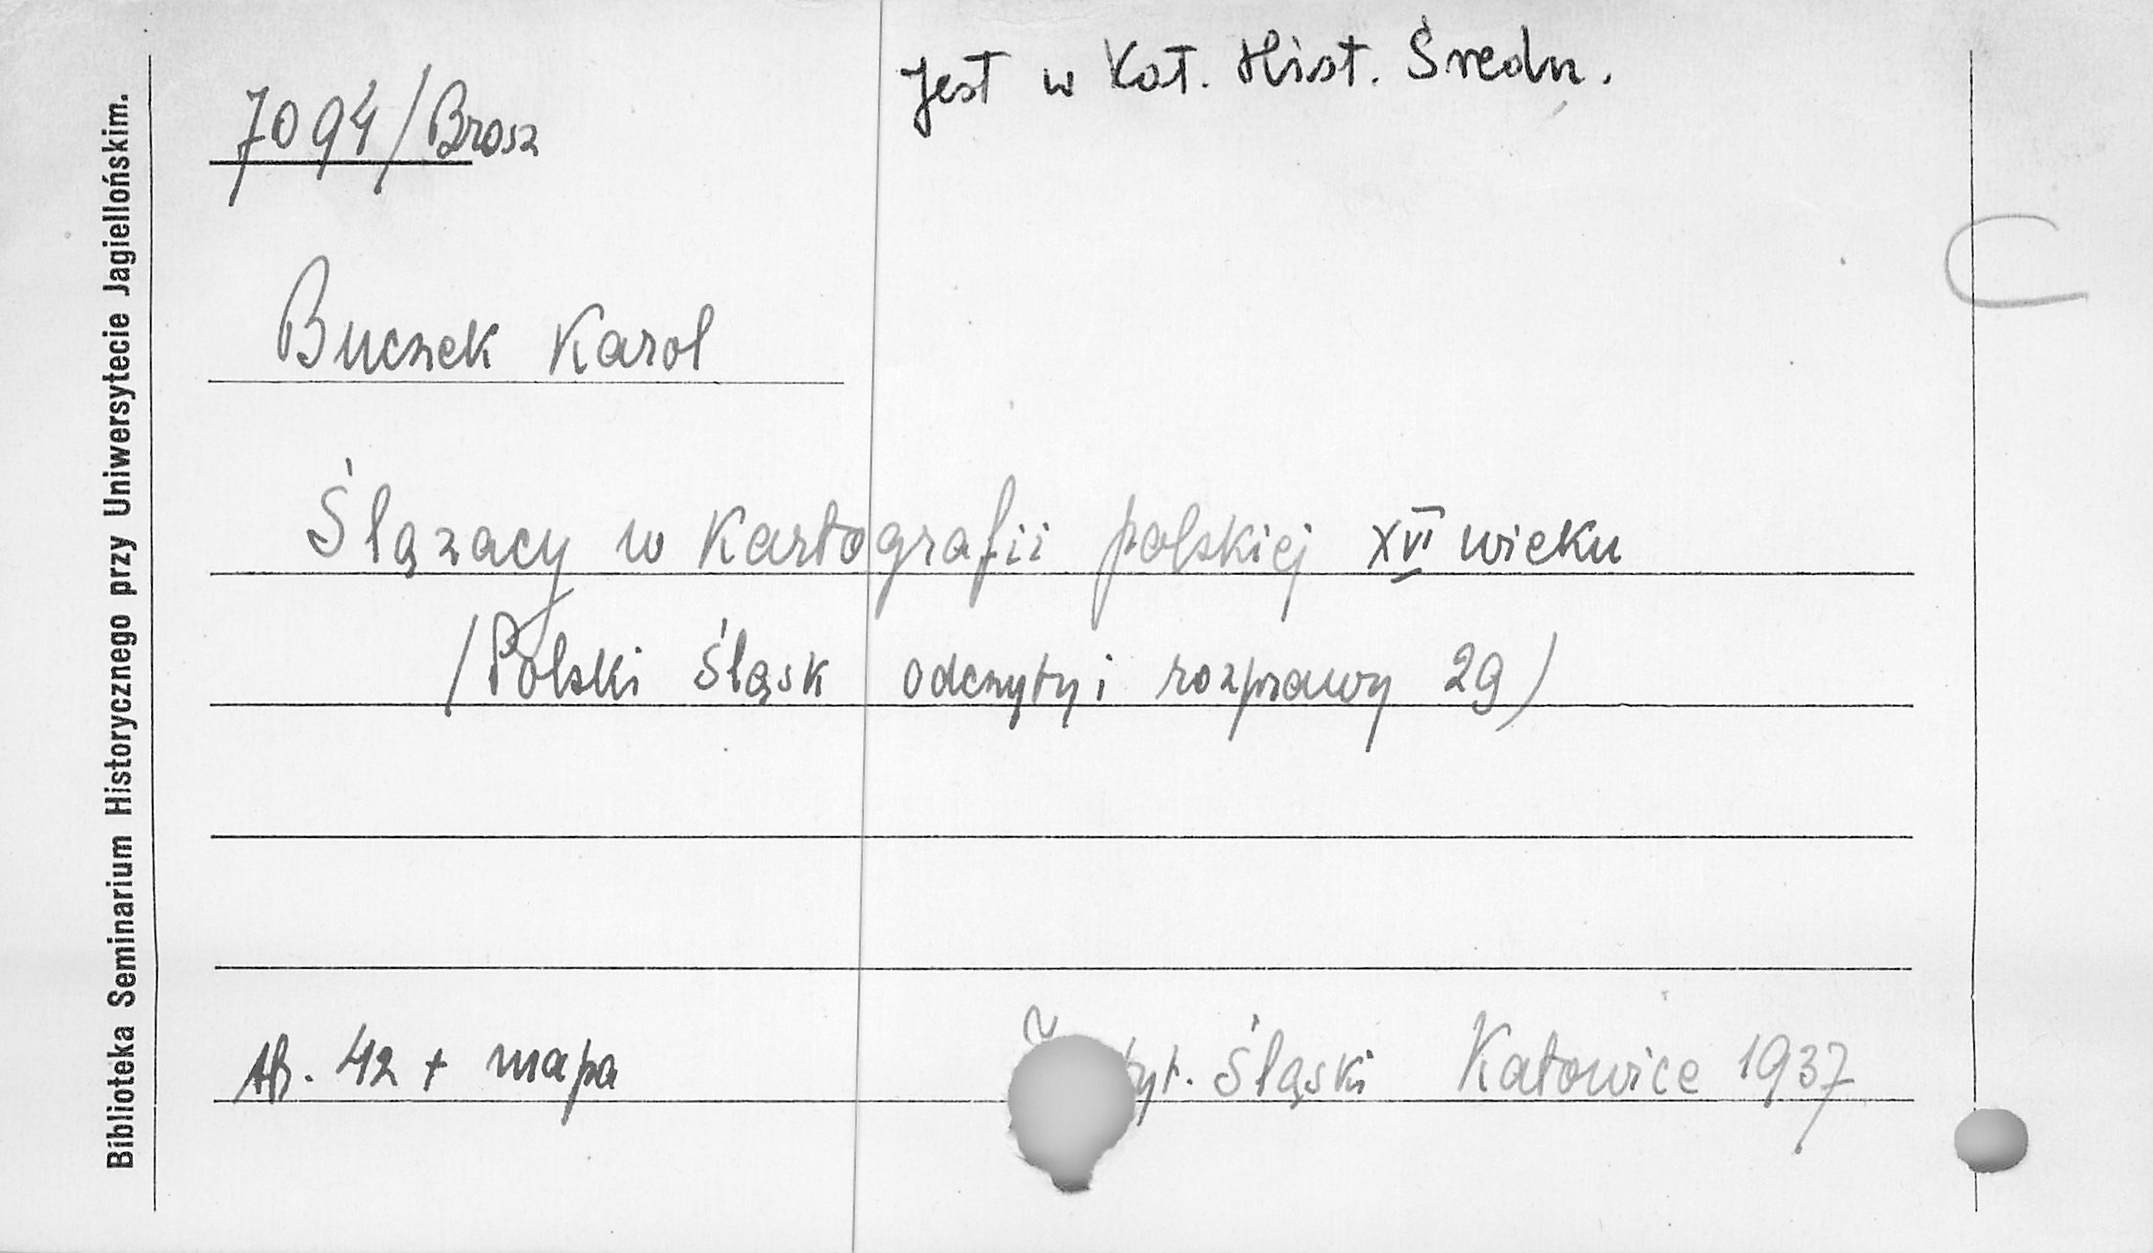 Jest w Kat. Hist. Średn.
7094/Brosz
Buczek Karol
Ślązacy w Kartografii polskiej XVI wieku
/Polski Śląsk odczyty i rozprawy 29/
str. 42 + mapa
Śląski Katowice 1937
Biblioteka Seminarium Historycznego przy Uniwersytecie Jagiellońskim.